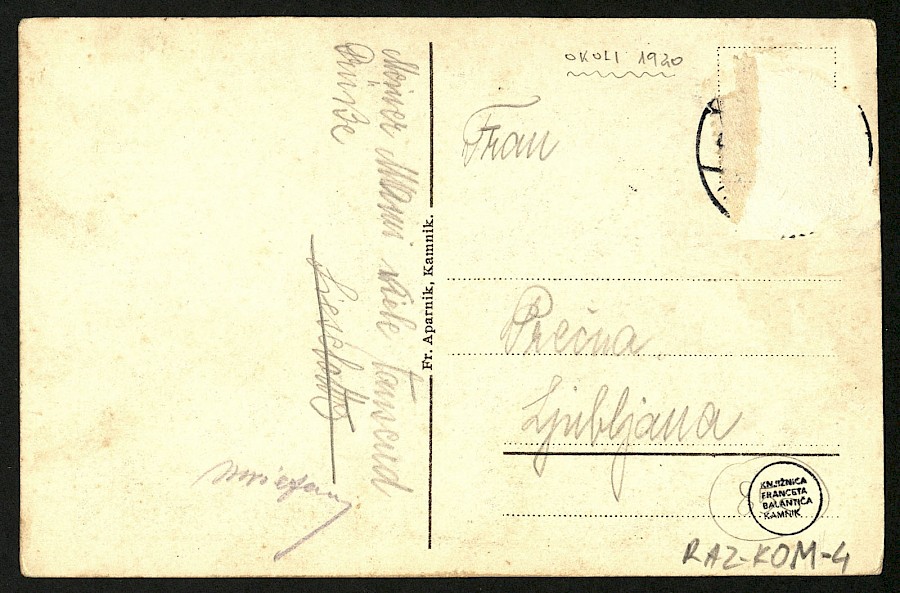 OKOLI 1920
Meiner Mami viele tausend
Grüße
Lieselotte
Fr. Aparnik, Kamnik.
Frau
Prečna
Ljubljana
KNJIŽNICA
FRANCETA
BALANTIČA
KAMNIK
RAZ-KOM-4